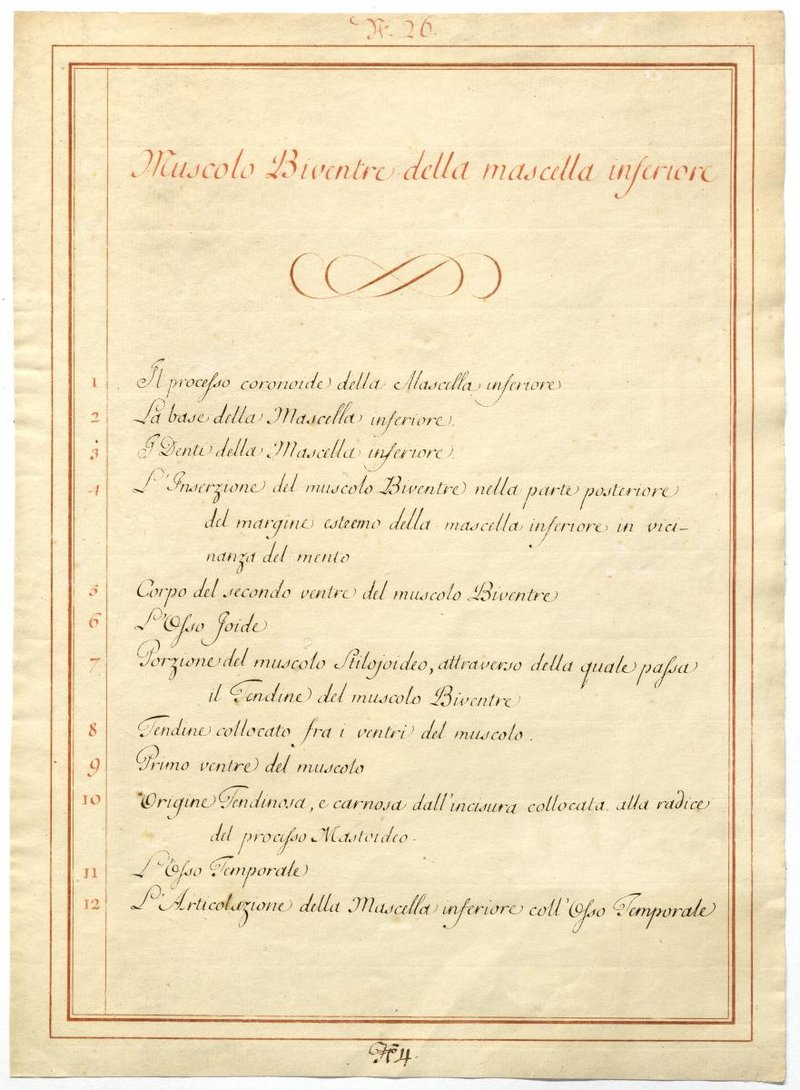 N.° 26.
Muscolo Biventre della mascella inferiore
1 Il processo coronoide della Mascella inferiore
2 La base della Mascella inferiore.
3 I Denti della Mascella inferiore.
4 L'Inserzione del muscolo Biventre nella parte posteriore
del margine estremo della mascella inferiore in vici-
nanza del mento
5 Corpo del secondo ventre del muscolo Biventre
6 L'Osso Joide
7 Porzione del muscolo Stilojoideo, attraverso della quale passa
il Tendine del muscolo Biventre
8 Tendine collocato fra i ventri del muscolo.
9 Primo ventre del muscolo
10 Origine Tendinosa, e carnosa dall'incisura collocata alla radice
del processo Mastoideo.
11 L'Osso Temporale
12 L'Articolazione della Mascella inferiore coll'Osso Temporale